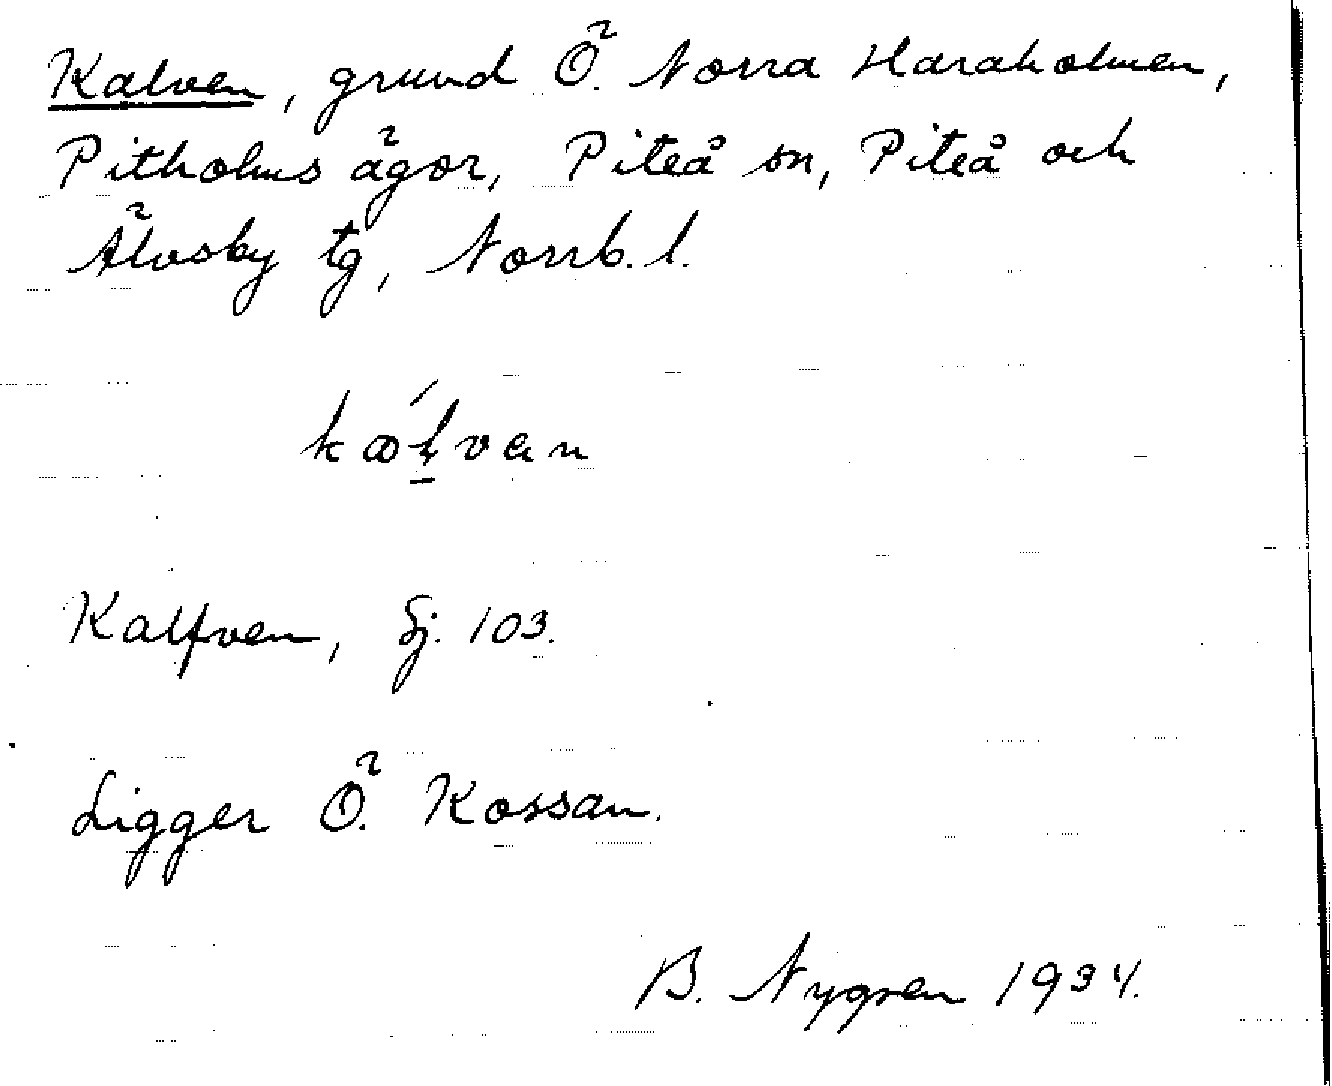 Kalven, grund Ö. Norra Haraholmen,
Pitholms ägor, Piteå sn, Piteå och
Älvsby tg, Norrb. l.
Kalfven, Sj. 103.
Ligger Ö. Kossan.
B. Nygren 1934.